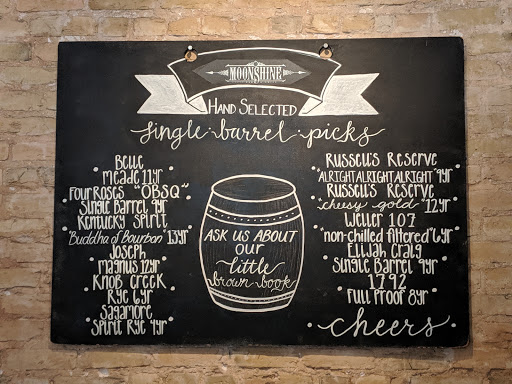 MOONSHINE
HAND SELECTED
single barrel picks
Belle
Meade 11yr
Four Roses "OBSQ"
Single Barrel 9yr
Kentucky Spirit
"Buddha of Bourbon" 13yr
Joseph
Magnus 12yr
Knob Creek
Rye 6yr
Sagamore
Spirit Rye 4yr
ASK US ABOUT
our
little
brown book
Russell's Reserve
"ALRIGHTALRIGHTALRIGHT" 9yr
Russell's Reserve
"cheesy gold" 12yr
Weller 107
"non-chilled filtered" 6yr
Elijah Craig
Single Barrel 9yr
1792
Full Proof 8yr
cheers